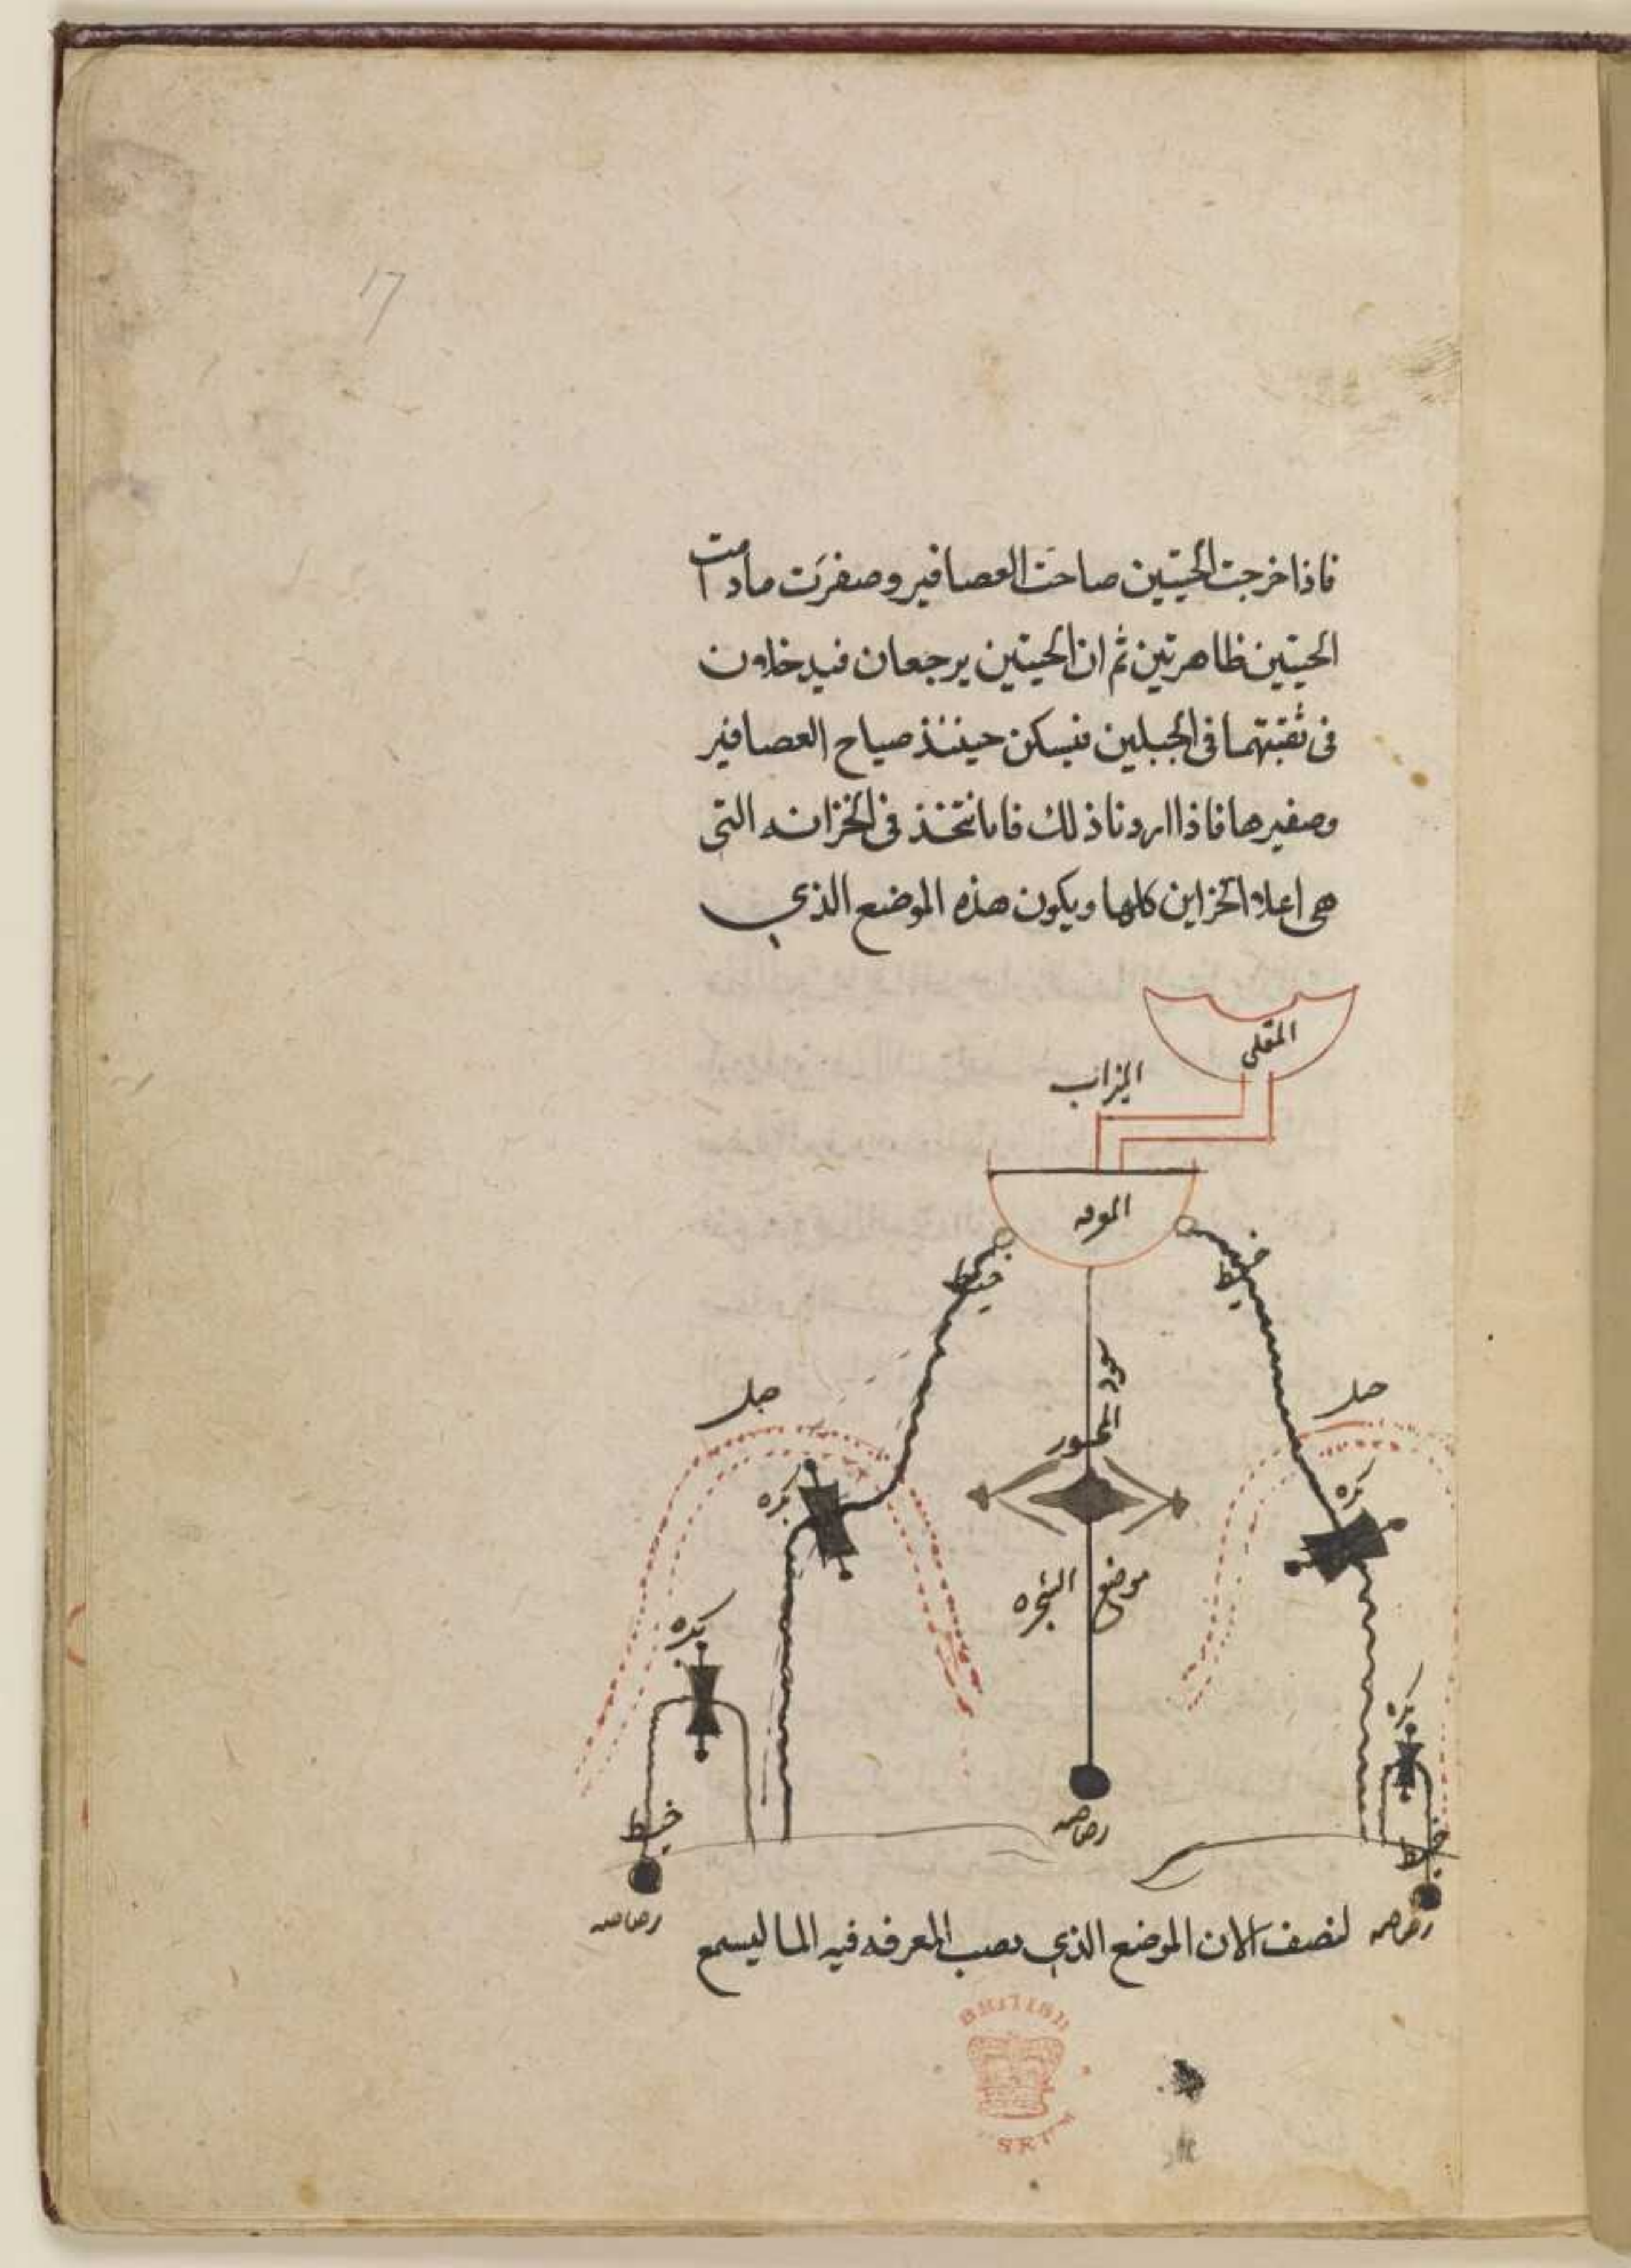 17
فاذا خرجت الحيتين صاحت العصافير وصفرت مادامت
الحيتين ظاهرتين ثم ان الحيتين يرجعان فيدخلون
فى ثقبتهما فى الجبلين فيسكن حينئذ صياح العصافير
وصفيرها فاذا اردنا ذلك فانا نتخذ فى الخزانه التى
هى اعلا الخزاين كلها ويكون هذه الموضع الذي
المقلى
الميزاب
خيط
خيط
جبل
جبل
عمود
المحور
بكره
بكره
موضع الشجره
بكره
بكره
خيط
رصاصه
خيط
رصاصه
رصاصه
لنصف الان الموضع الذي يصب المعرفه فيه الما ليسمع
BRITISH